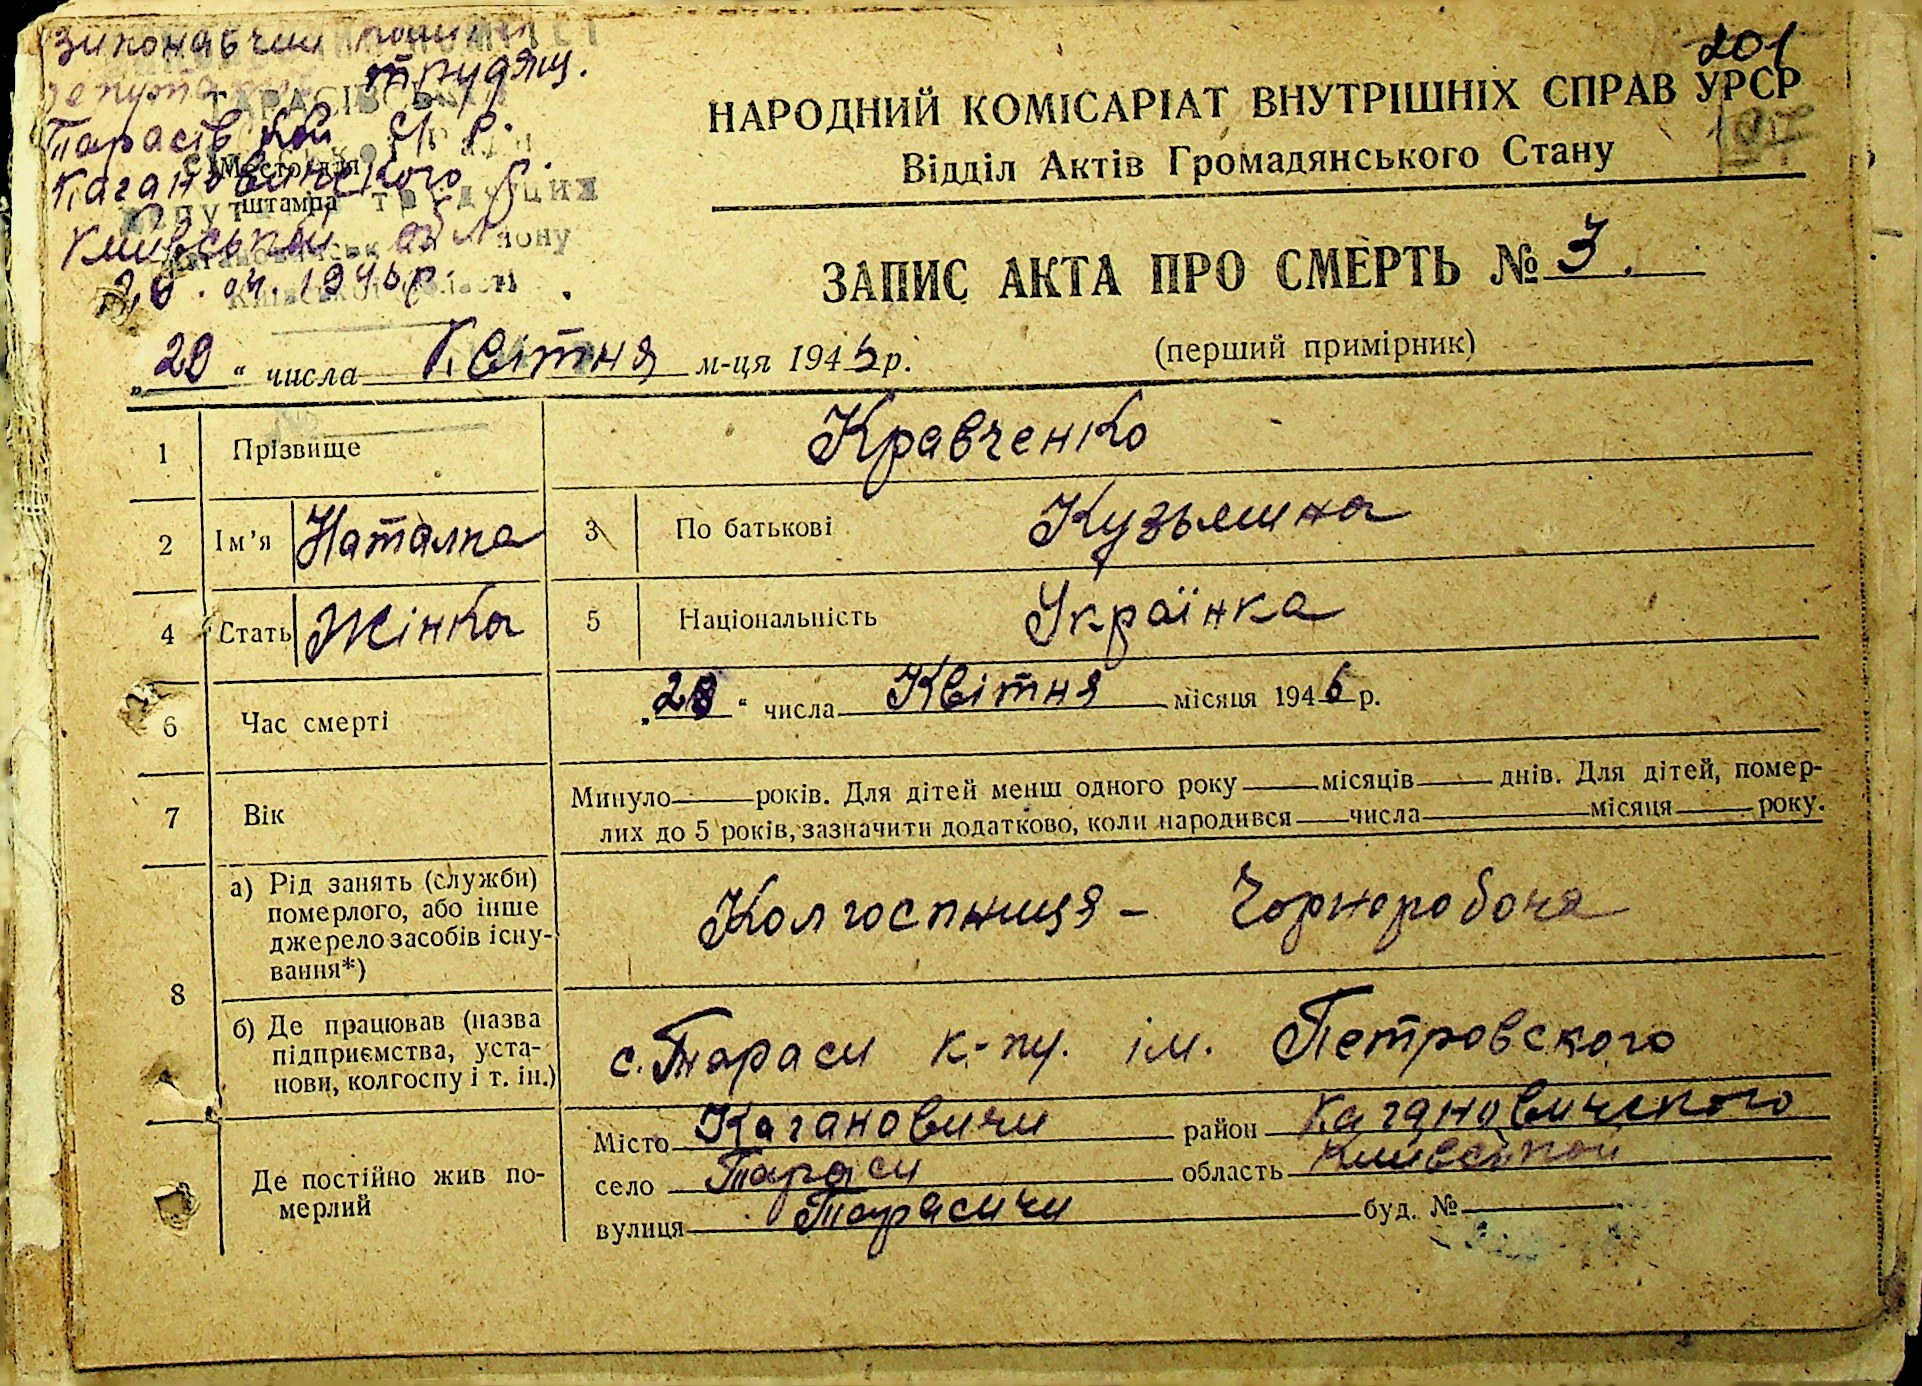 201
трудящ.
Тарасівської С. Р.
Кагановичського р.
Київської обл.
Місто для
штампа
НАРОДНИЙ КОМІСАРІАТ ВНУТРІШНІХ СПРАВ УРСР
Відділ Актів Громадянського Стану
ЗАПИС АКТА ПРО СМЕРТЬ № 3.
(перший примірник)
„20“ числа Квітня м-ця 1945 р.
1 Прізвище Кравченко
2 Ім'я Наталка 3 По батькові Кузьмина
4 Стать Жінка 5 Національність Українка
6 Час смерті „ “ числа Квітня місяця 194 р.
7 Вік Минуло років. Для дітей менш одного року місяців днів. Для дітей, помер-
лих до 5 років, зазначити додатково, коли народився числа місяця року.
8 а) Рід занять (служби)
померлого, або інше
джерело засобів існу-
вання*)
Колгоспниця – Чорноробоча
б) Де працював (назва
підприємства, уста-
нови, колгоспу і т. ін.)
с. Тараси к-пу. ім. Петровского
Де постійно жив по-
мерлий
Місто Кагановичи район Кагановичского
село Тараси область Київской
вулиця Тарасичи буд. №